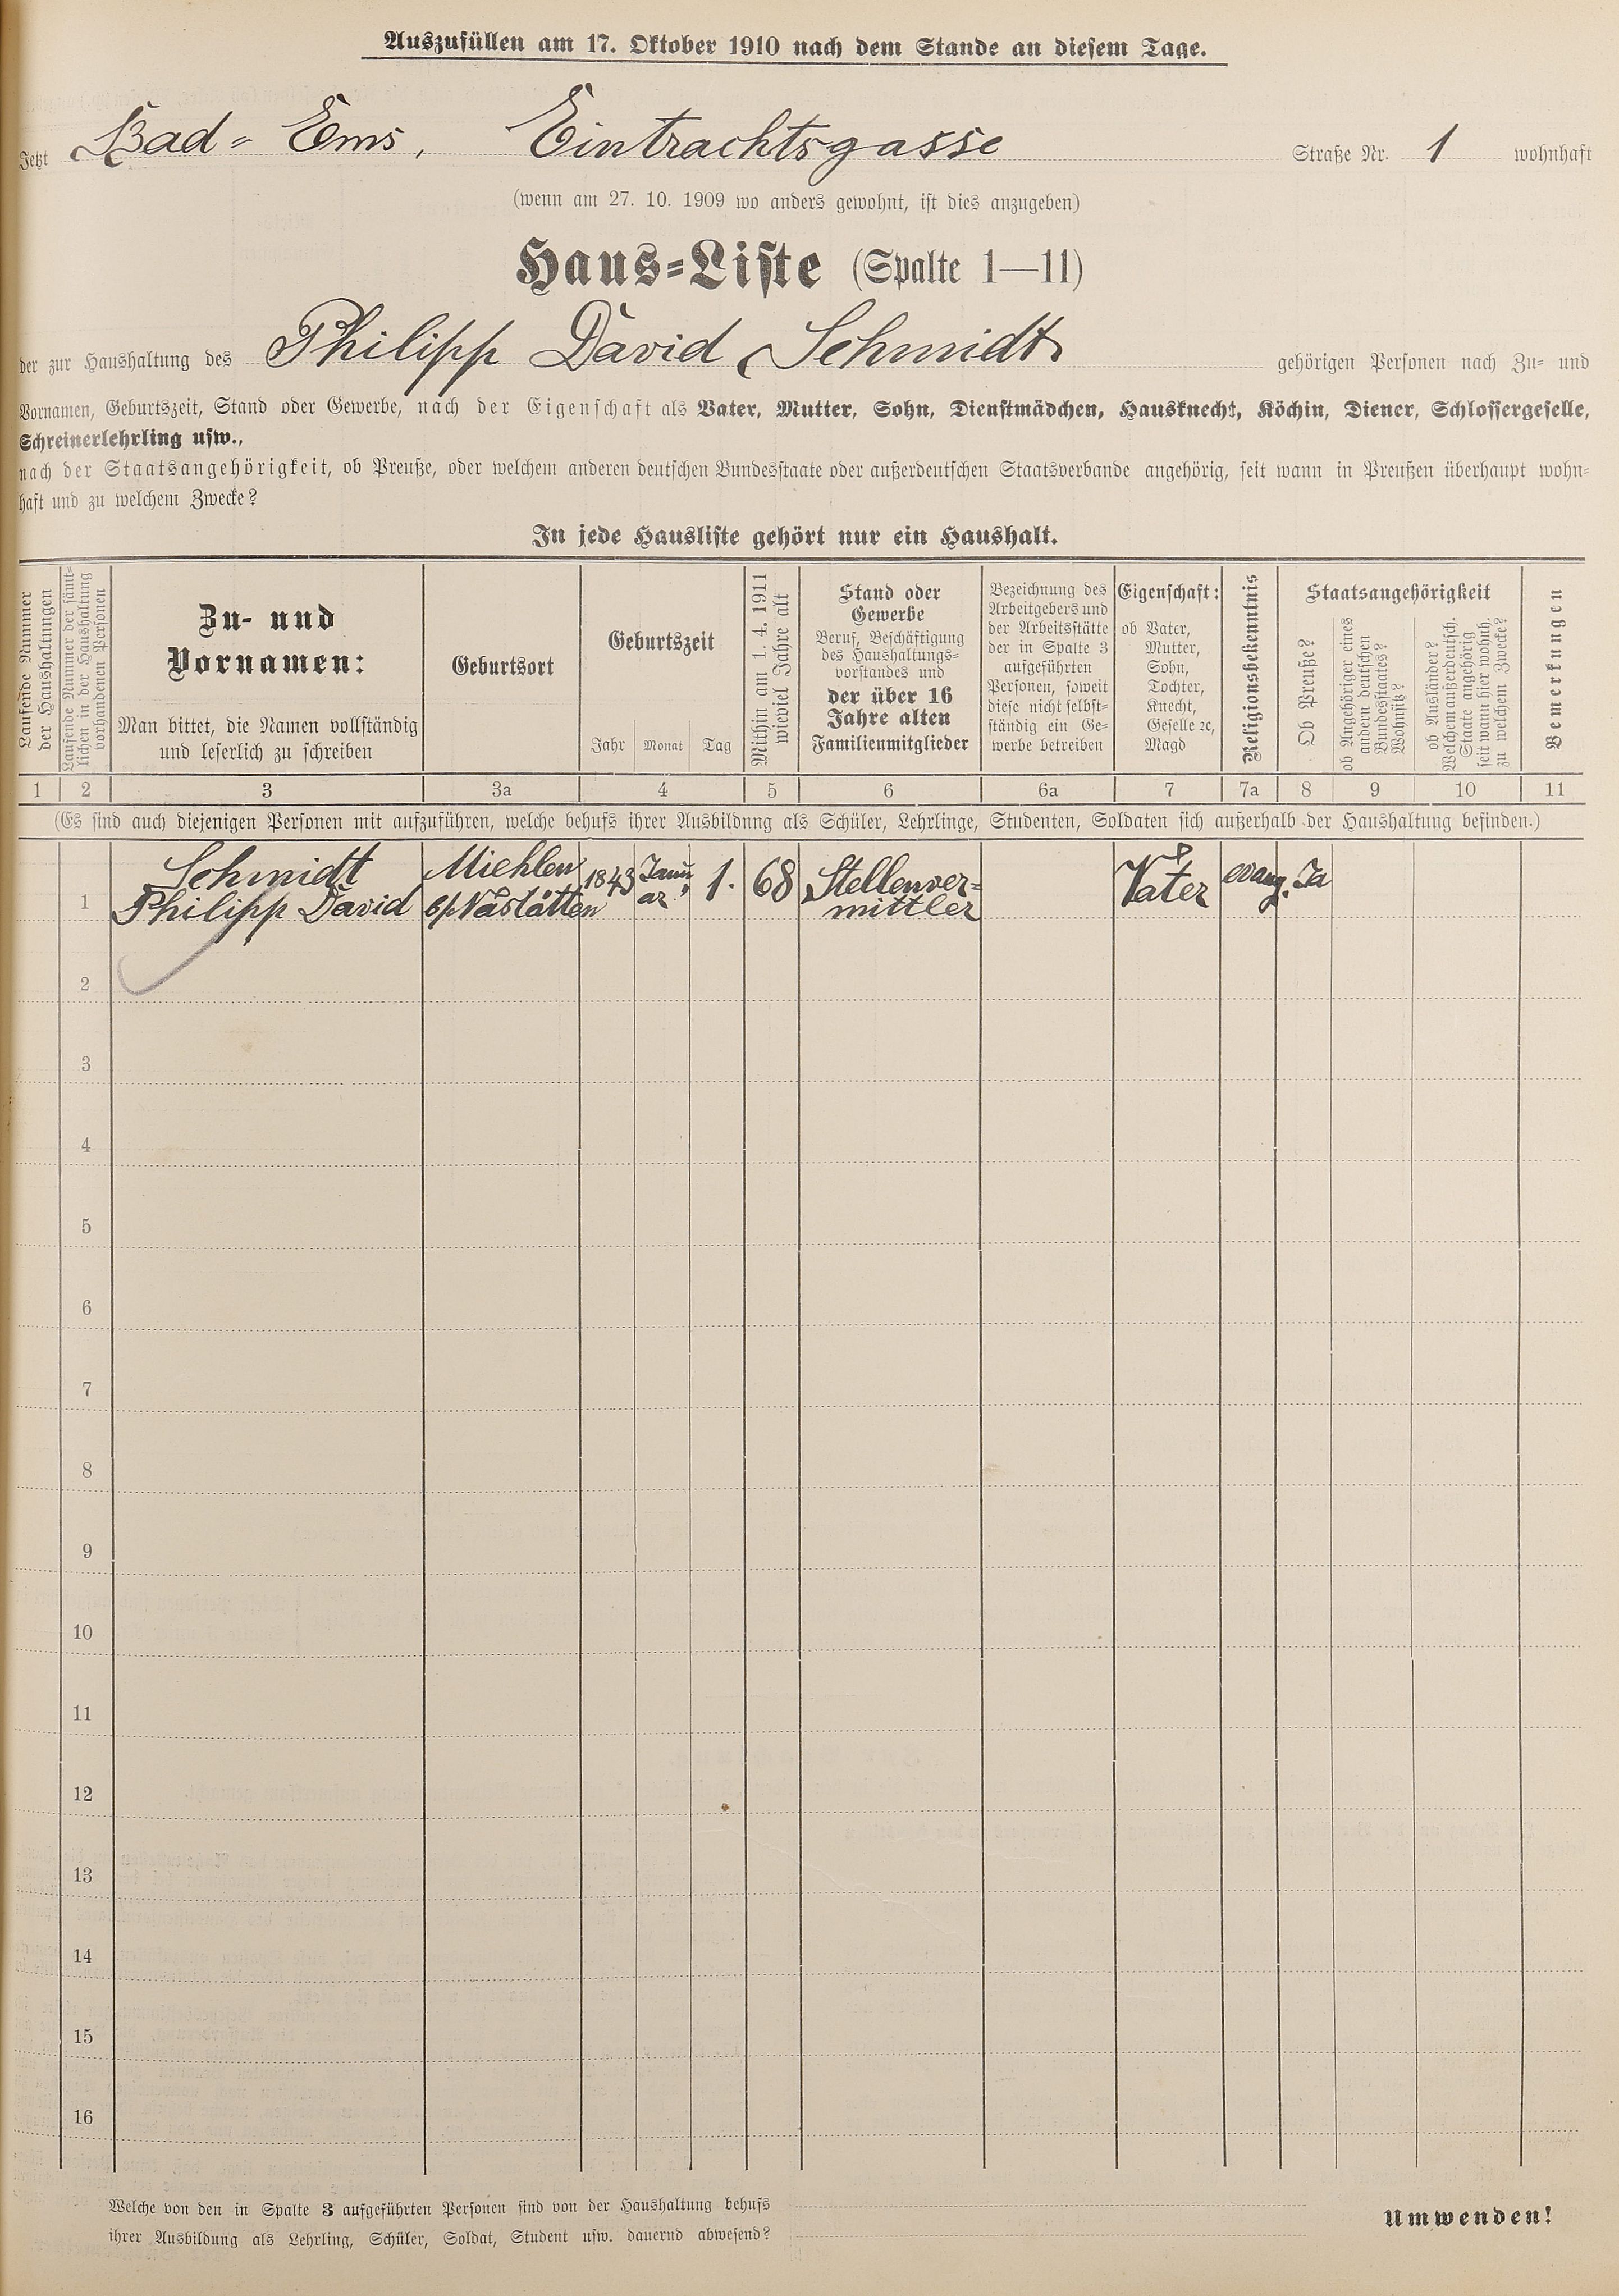 Auszufüllen am 17. Oktober 1910 nach dem Stande an diesem Tage.
Jetzt Bad-Ems, Eintrachtsgasse Straße Nr. 1 wohnhaft
(wenn am 27. 10. 1909 wo anders gewohnt, ist dies anzugeben)
Haus-Liste (Spalte 1—11)
der zur Haushaltung des Philipp David Schmidt gehörigen Personen nach Zu- und
Vornamen, Geburtszeit, Stand oder Gewerbe, nach der Eigenschaft als Vater, Mutter, Sohn, Dienstmädchen, Hausknecht, Köchin, Diener, Schlossergeselle,
Schreinerlehrling usw.,
nach der Staatsangehörigkeit, ob Preuße, oder welchem anderen deutschen Bundesstaate oder außerdeutschen Staatsverbande angehörig, seit wann in Preußen überhaupt wohn-
haft und zu welchem Zwecke?
In jede Hausliste gehört nur ein Haushalt.
Laufende Nummer
der Haushaltungen
Laufende Nummer der sämt-
lichen in der Haushaltung
vorhandenen Personen
Zu- und
Vornamen:
Man bittet, die Namen vollständig
und leserlich zu schreiben
Geburtsort
Geburtszeit
Jahr Monat Tag
Mithin am 1. 4. 1911
wieviel Jahre alt
Stand oder
Gewerbe
Beruf, Beschäftigung
des Haushaltungs-
vorstandes und
der über 16
Jahre alten
Familienmitglieder
Bezeichnung des
Arbeitgebers und
der Arbeitsstätte
der in Spalte 3
aufgeführten
Personen, soweit
diese nicht selbst-
ständig ein Ge-
werbe betreiben
Eigenschaft:
ob Vater,
Mutter,
Sohn,
Tochter,
Knecht,
Geselle ꝛc,
Magd
Religionsbekenntnis
Staatsangehörigkeit
Ob Preuße?
ob Angehöriger eines
andern deutschen
Bundesstaates?
Wohnsitz?
ob Ausländer?
Welchem außerdeutsch.
Staate angehörig
seit wann hier wohnh.
zu welchem Zwecke?
Bemerkungen
1 2 3 3a 4 5 6 6a 7 7a 8 9 10 11
(Es sind auch diejenigen Personen mit aufzuführen, welche behufs ihrer Ausbildung als Schüler, Lehrlinge, Studenten, Soldaten sich außerhalb der Haushaltung befinden.)
Schmidt Miehlen 1843 Janu 1. 68 Stellenver- Vater evang. Ja
1 Philipp David b/Nastätten ar mittler
2
3
4
5
6
7
8
9
10
11
12
13
14
15
16
Welche von den in Spalte 3 aufgeführten Personen sind von der Haushaltung behufs
ihrer Ausbildung als Lehrling, Schüler, Soldat, Student usw. dauernd abwesend?
Umwenden!